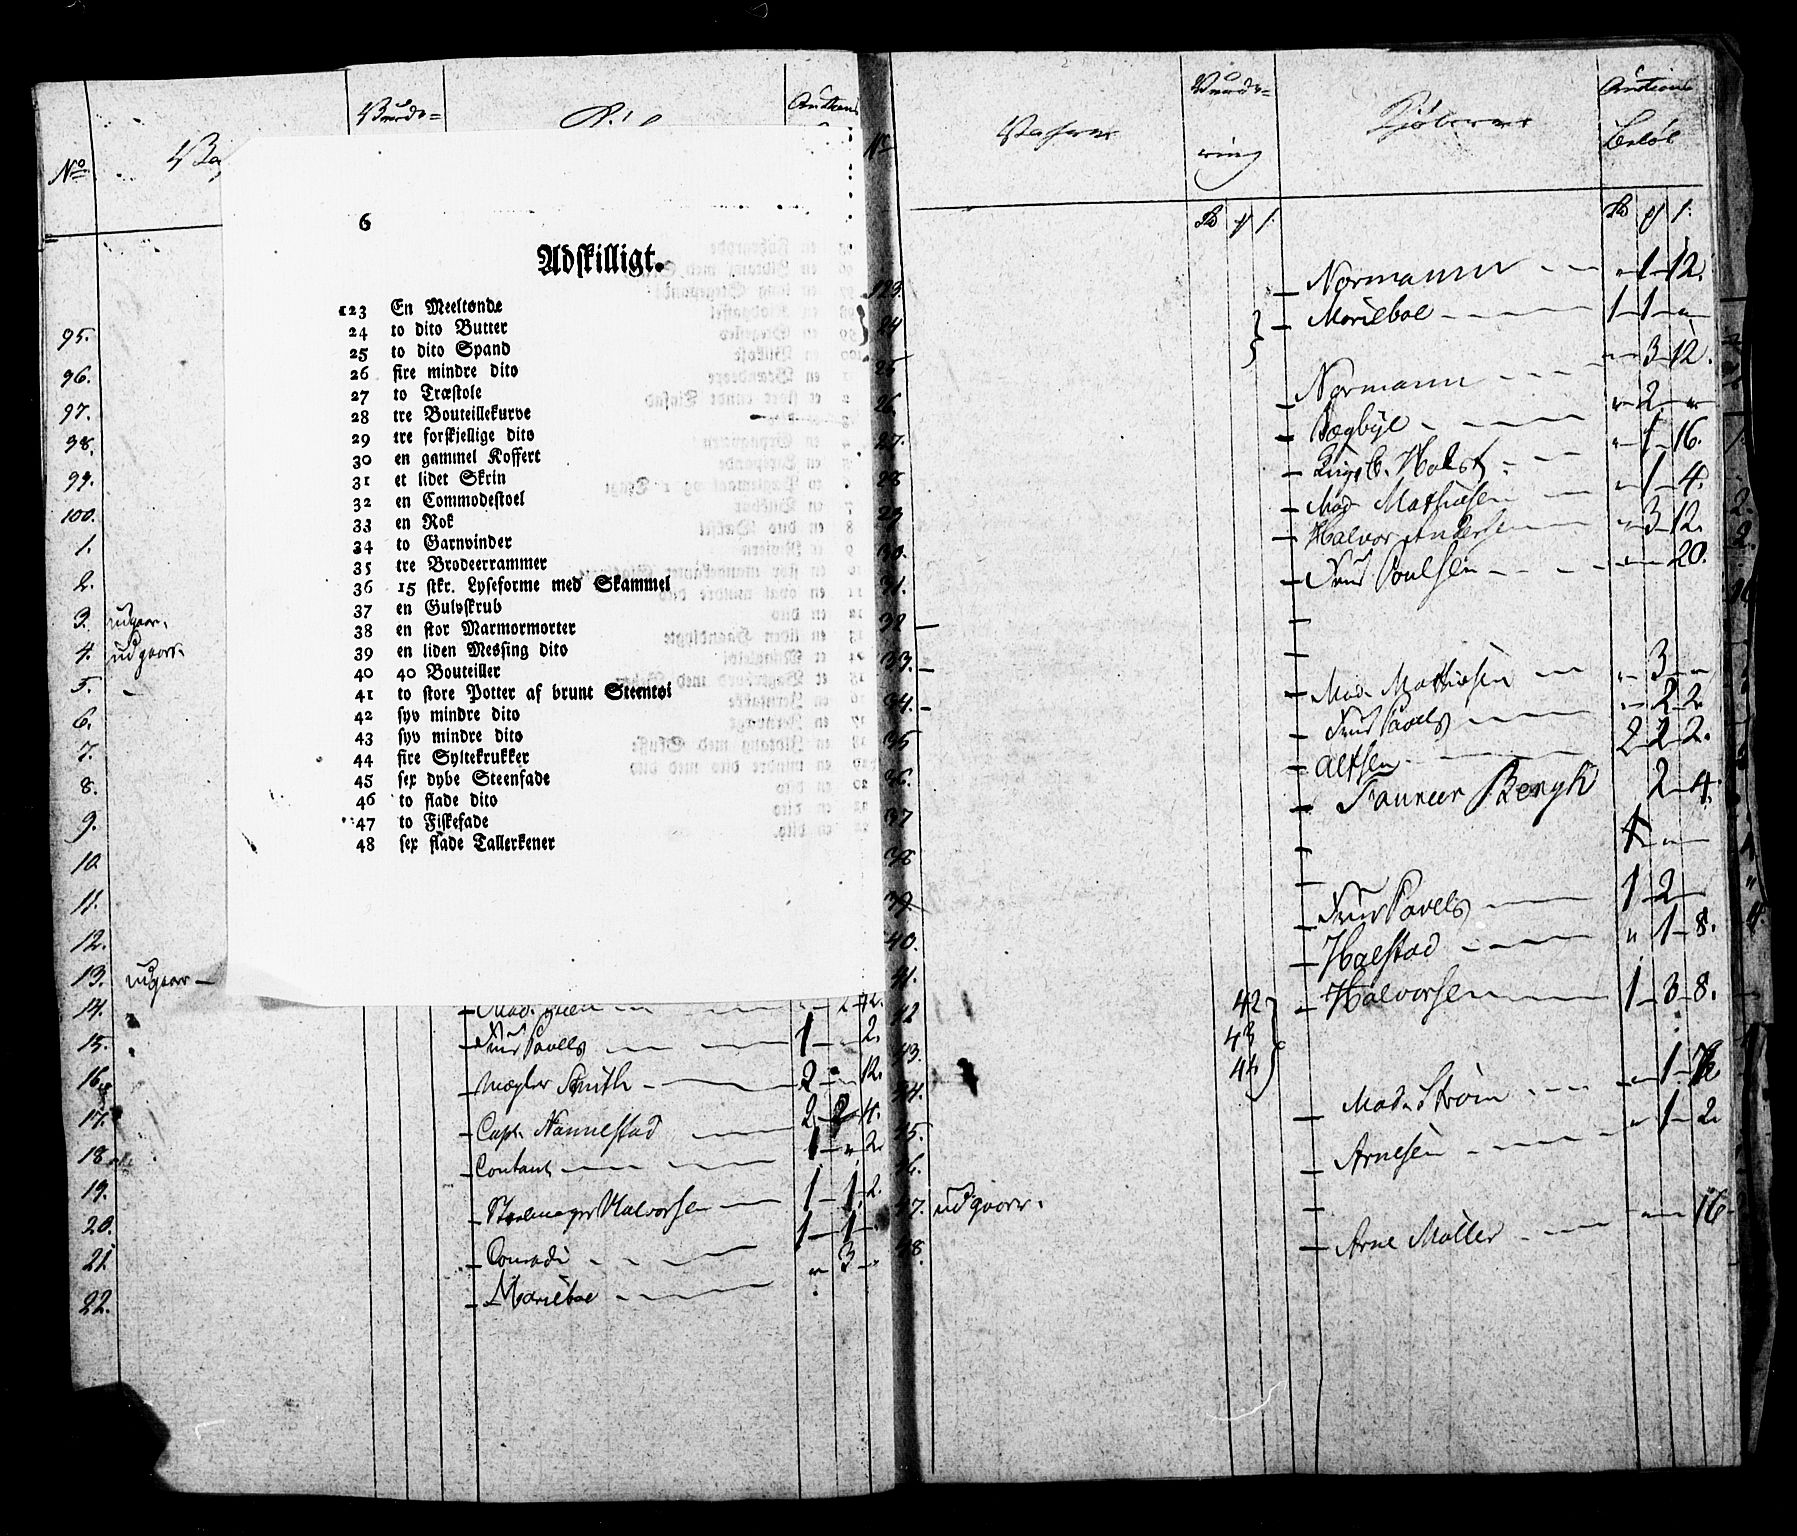 No
Vurde=
Auctions
95.
96.
97.
98.
99.
100.
1.
2.
3. udgaar.
4. udgaar.
5. -
6.
7.
8.
9.
10.
11.
12.
13. udgaar -
14.
15. Frue Pavels 1 - 2.
16. Mægler Smith - 2 - 12.
17. Capt. Nannestad 2 - 2 - 4.
18. 1 - " 2
19. Halvorsen 1 - 1 - 2.
20. Conradi 1 - 1 -
21. Marieboe " 3 -
22.
6
Adskilligt.
123 En Meeltønde
24 to dito Butter
25 to dito Spand
26 fire mindre dito
27 to Træstole
28 tre Bouteillekurve
29 tre forskjellige dito
30 en gammel Koffert
31 et lidet Skrin
32 en Commodestoel
33 en Rok
34 to Garnvinder
35 tre Brodeerrammer
36 15 stkr. Lyseforme med Skammel
37 en Gulvskrub
38 en stor Marmormorter
39 en liden Messing dito
40 40 Bouteiller
41 to store Potter af brunt Steentøi
42 syv mindre dito
43 syv mindre dito
44 fire Syltekrukker
45 sex dybe Steenfade
46 to flade dito
47 to Fiskefade
48 sex flade Tallerkener
No Vahrene Vurde=ring Kjøberne Auctions Beløb
123. Normann " - 1 - 12.
24 Marieboe 1 - 1 - "
25 " - 3 - 12.
26. Normann " 2 - "
27. " 1 - 16.
28 Holst " - 1 - 4.
29 Mad. Mathiesen " 3 - 12.
30. Halvor Andersen " - 20.
31. Frue Poulsen
32 -
33. -
34. - Mad. Mathiesen " 3 - "
35 Frue Pavels " - 2 - 2.
36. 2 - 2 - 2.
37 Bergh 2 - 4.
38 4 - "
39.
40. Frue Pavels 1 - 2 -
41. Halstad " 1 - 8.
42 42 Halvorsen 1 - 3 - 8.
43. 43
44. 44
45. Mad. Strøm " - 1 -
46. Arnesen " - 1 - 2
47. udgaar.
48. Arne Møller " - 16